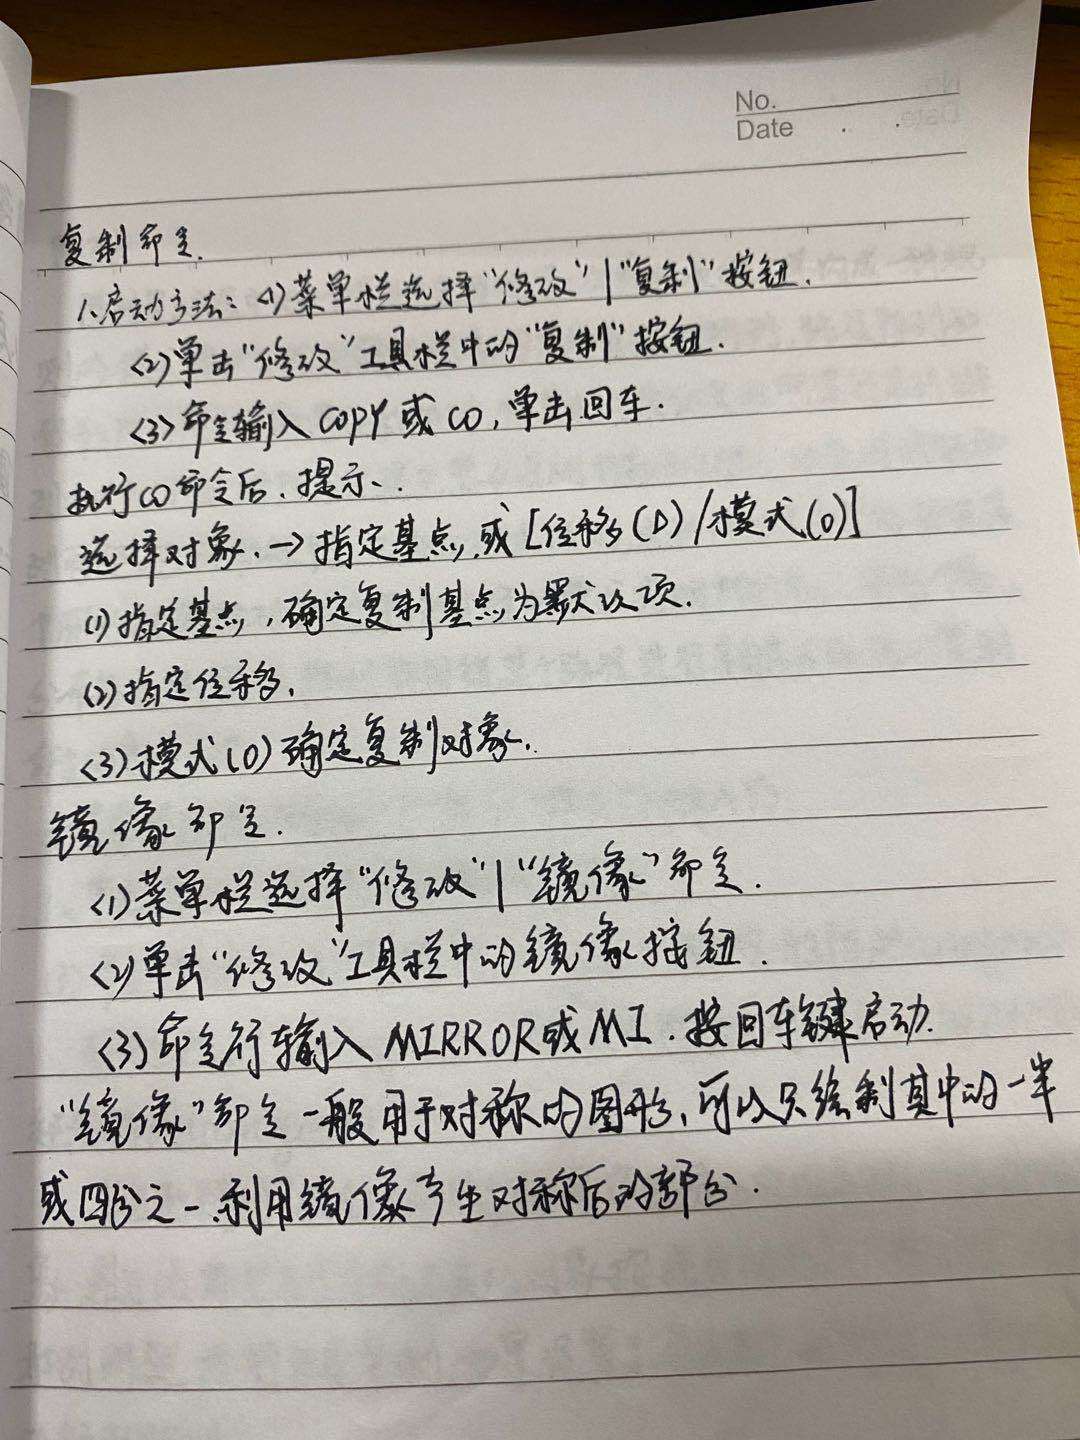 No.
Date
复制命令.
1.启动方法:<1>菜单栏选择“修改”|“复制”按钮.
<2>单击“修改”工具栏中的“复制”按钮.
<3>命令输入COPY或CO,单击回车.
执行CO命令后.提示、.
选择对象.→指定基点.或[位移(D)/模式(O)]
(1)指定基点,确定复制基点为默认项.
(2)指定位移.
<3>模式(O)确定复制对象.
镜像命令.
<1>菜单栏选择“修改”|“镜像”命令.
<2>单击“修改”工具栏中的镜像按钮.
<3>命令行输入MIRROR或MI.按回车键启动.
“镜像”命令一般用于对称的图形,可以只绘制其中的一半
或四分之一.利用镜像产生对称后的部分.